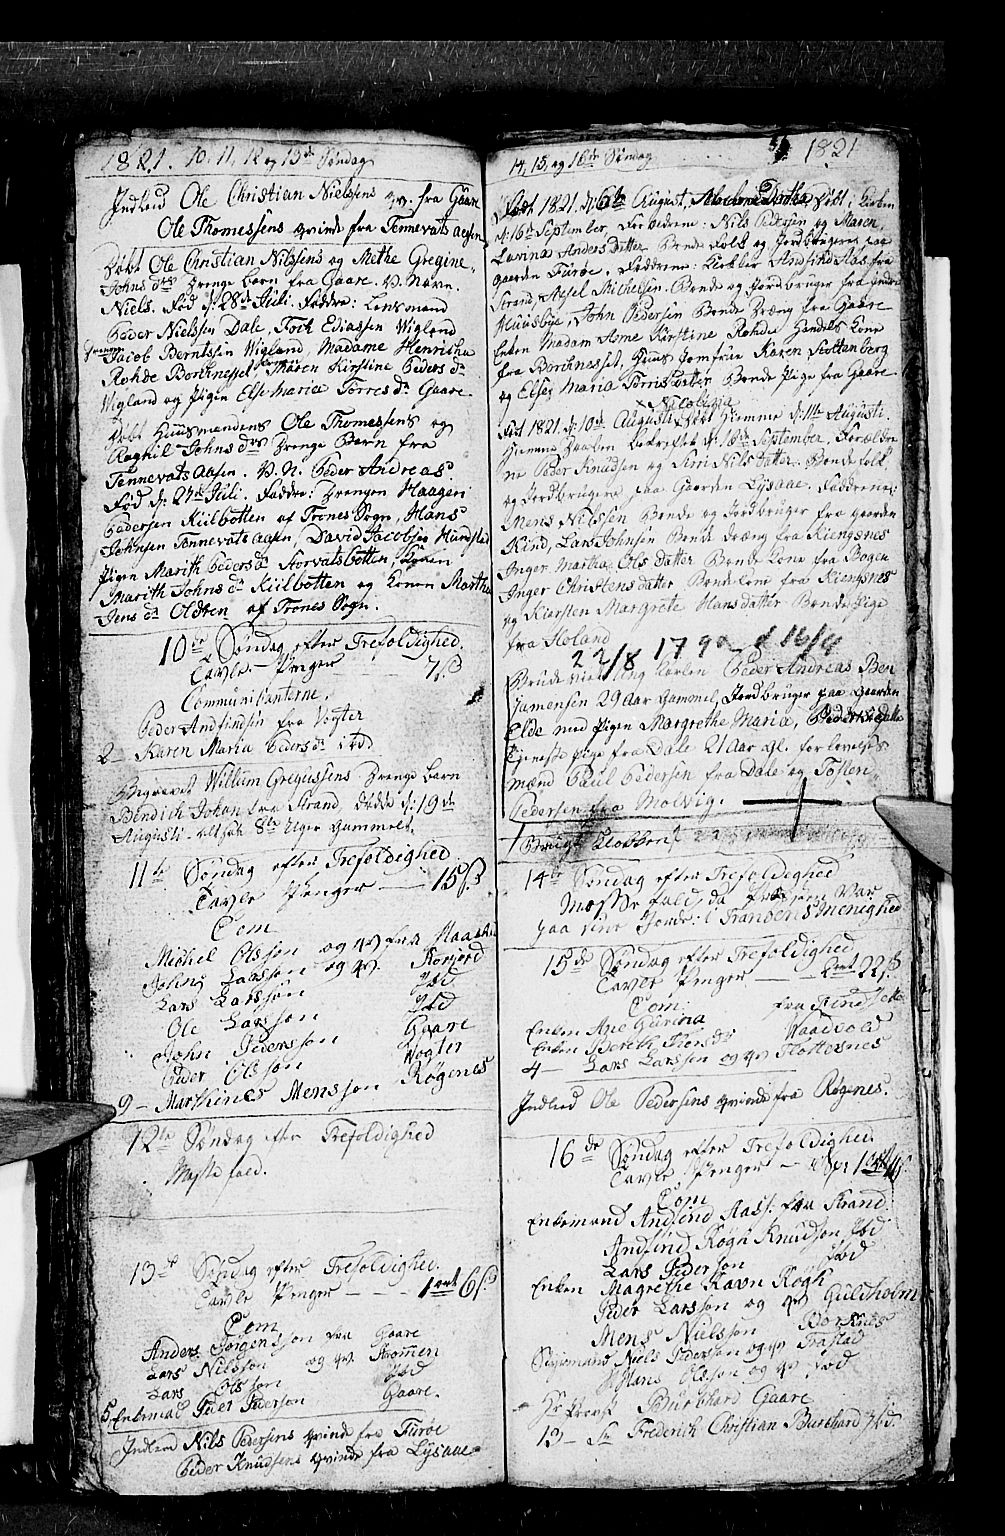 1821. 10, 11, 12 og 13de Søndag
Indled Ole Christian Nielssens qv. fra Gaare
Ole Thomessens qvinde fra Tennevats aasen
Døbt Ole Christian Nilssens og Methe Gregine
Johns dtrs Drenge barn fra Gaare. V. Navn.
Niels. Fød d: 28de Juli. Faddre: Lensmand
Peder Nielssen Dale, Fock Ediassen Wigland
Jacob Berntssen Wigland, Madame Henricha
Rohde Borchnesset, Maren Kirstine Peders dr
Wigland og Pigen Else Maria Torres dr Gaare.
Døbt Huusmandens Ole Thomessens og
Ragnil Johns drs Drenge Barn fra
Tennevats Aasen. V. N. Peder Andreas.
Fød d: 27de Juli. Faddre: Drengen Haagen
Pedersen Kiilbotten af Trones Sogn, Hans
Johnsen Tennevats Aasen, David Jacobsen Hundstad
Pigen Marith Peders dr Storvatsbotten,
Marith Johns dr Kiilbotten og Konen Marthe
Jens dr Oldren af Trones Sogn.
10de Søndag efter Trefoldighed.
Tavle Penger - - - 7ß
Communicanterne.
Peder Andfindsen fra Vogter
2 - Karen Maria Peders dr ibd
Begravet Willum Gregussens Drenge barn
Bendich Johan fra Strand, døde d: 19de
Augusti. alt. 8te Uger Gammel.
11te Søndag efter Trefoldighed
Tavle Penger - - 15ß
Com
Michel Olsson og qv fra
John Larsson og qv. Korsjord
Lars Larssøn Ibd
Ole Larssøn Ibd
John Pederssøn Gaare
Peder Olsson Vogter
9 - Marthines Mensson Røgenes
12te Søndag efter Trefoldighed
Messe fald.
13de Søndag efter Trefoldighed.
Tavle Penger - - - 1 ort 6ß
Com
Anders Jørgensson fra Gaare
Lars Nilsson og qv. Strømen
Lars Olsson Ibd
5 Enkemand Peder Pederson Gaare.
Indled Nils Pedersens qvind fra Furøe
Peder Knudsens qvinde fra Lysaae
14, 15, og 16de Søndag 1821
Født 1821. d: 6te August, Døbt i Kirken
d: 16de September, Forældrene: Nils Pedersen og Maren
Lovina Anders datter Bonde folk og Jordbrugere paa
Gaarden Furøe. Faddrene: Andfind Aas fra
Strand, Axsel Michelsen. Bonde og Jordbruger fra Indre
Huusbye, John Pedersen Bonde Dræng fra Gaare
Enken Madam Anne Kirstine Rohde Handels Kone
fra Borchnesset, Huus Jomfrue Karen Stoltenberg
og Elsey Maria Torris datter Bonde Pige fra Gaare
× Nicolina
Født 1821. d: 10de Augusti × døbt Hiemme d: 11te Augusti
Hiemme Daaben Bekræftet d: 16de September. Forældre-
ne Peder Knudsen og Siri Nils datter. Bonde folk
og Jordbrugere paa Gaarden Lysaae. Faddrene:
Mens Nilssen Bonde og Jordbruger fra gaarden
Kind, Lars Johnsen Bonde Dræng fra Kiengsnes
Inger Martha Ols datter Bonde Kone fra Bogen
Inger Christens datter Bonde Kone fra Kiengsnes
og Kiersten Margrete Hans datter Bonde Pige
fra Holand
22/8 1790 d 16/9
Brude viet Ung Karlen Peder Andreas Ben
jamensen 29 Aar Gammel, Jordbruger paa Gaarden
Elde med Pigen Margrethe Maria, Peders datter
Tjeneste Pige fra Dale 21 Aar gl. forlovelses
mænd Paul Pedersen fra Dale og Tosten
Pedersen fra Molvig.
14de Søndag efter Trefoldighed
Messe fald, da Præsten Var
paa sine Jorde i Trandens Menighed
15de Søndag efter Trefoldighed
Tavle Penger - - 1 ort 22ß
Com.
Enken Ane Gurina fra
Enken Bereth Siers dr Vaadvold
4 - Lars Larssen og qv Flottesnes
Indled Ole Pedersens qvinde fra Røgenes.
16de Søndag efter Trefoldighed.
Tavle Penger - -
Com
Enkemand Andfind Aass. fra Strand.
Andfind Rogn Knudson Ibd
Lars Pederson Ibd
Enken Magrethe Ravn Rogn
Peder Larsson og qv Guldholm
Mens Nielsson Borknes
Styrmand Niels Pederson og qv Frøstad
Hans Olsson og qv Ibd
Hr Provst Burchard Gaare
13 - Sn Frederich Christian Burchard Ibd.